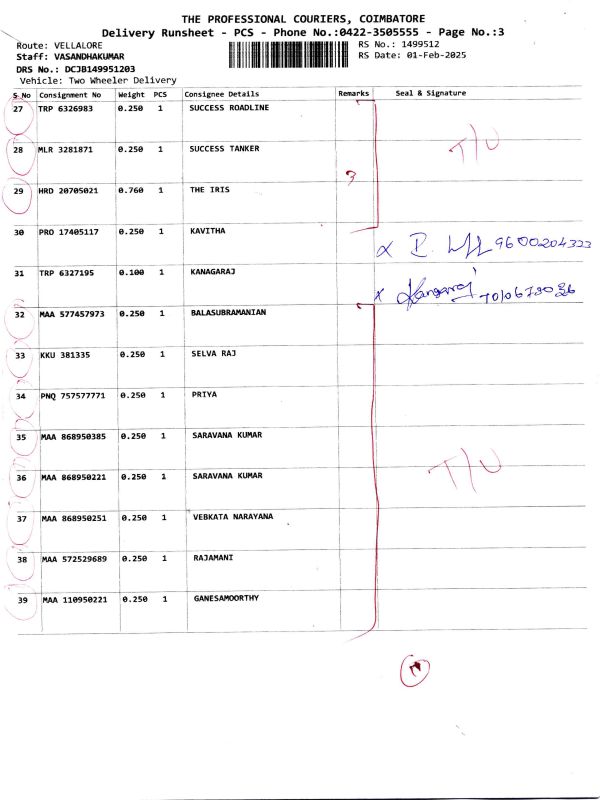 THE PROFESSIONAL COURIERS, COIMBATORE
Delivery Runsheet - PCS - Phone No.:0422-3505555 - Page No.:3
Route: VELLALORE RS No.: 1499512
Staff: VASANDHAKUMAR RS Date: 01-Feb-2025
DRS No.: DCJB149951203
Vehicle: Two Wheeler Delivery
S No Consignment No Weight PCS Consignee Details Remarks Seal & Signature
27 TRP 6326983 0.250 1 SUCCESS ROADLINE
28 MLR 3281871 0.250 1 SUCCESS TANKER T/U
29 HRD 20705021 0.760 1 THE IRIS
30 PRO 17405117 0.250 1 KAVITHA 9600204323
31 TRP 6327195 0.100 1 KANAGARAJ Kangaraj
32 MAA 577457973 0.250 1 BALASUBRAMANIAN
33 KKU 381335 0.250 1 SELVA RAJ
34 PNQ 757577771 0.250 1 PRIYA
35 MAA 868950385 0.250 1 SARAVANA KUMAR
36 MAA 868950221 0.250 1 SARAVANA KUMAR T/U
37 MAA 868950251 0.250 1 VEBKATA NARAYANA
38 MAA 572529689 0.250 1 RAJAMANI
39 MAA 110950221 0.250 1 GANESAMOORTHY